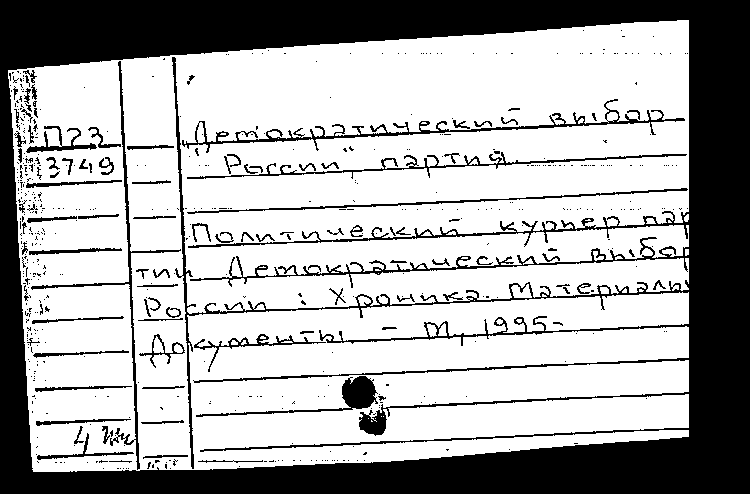 П23
3749
„Демократический выбор
России", партия.
Политический курьер пар
тии Демократический выбор
России : Хроника. Материалы
Документы. - М., 1995-
4